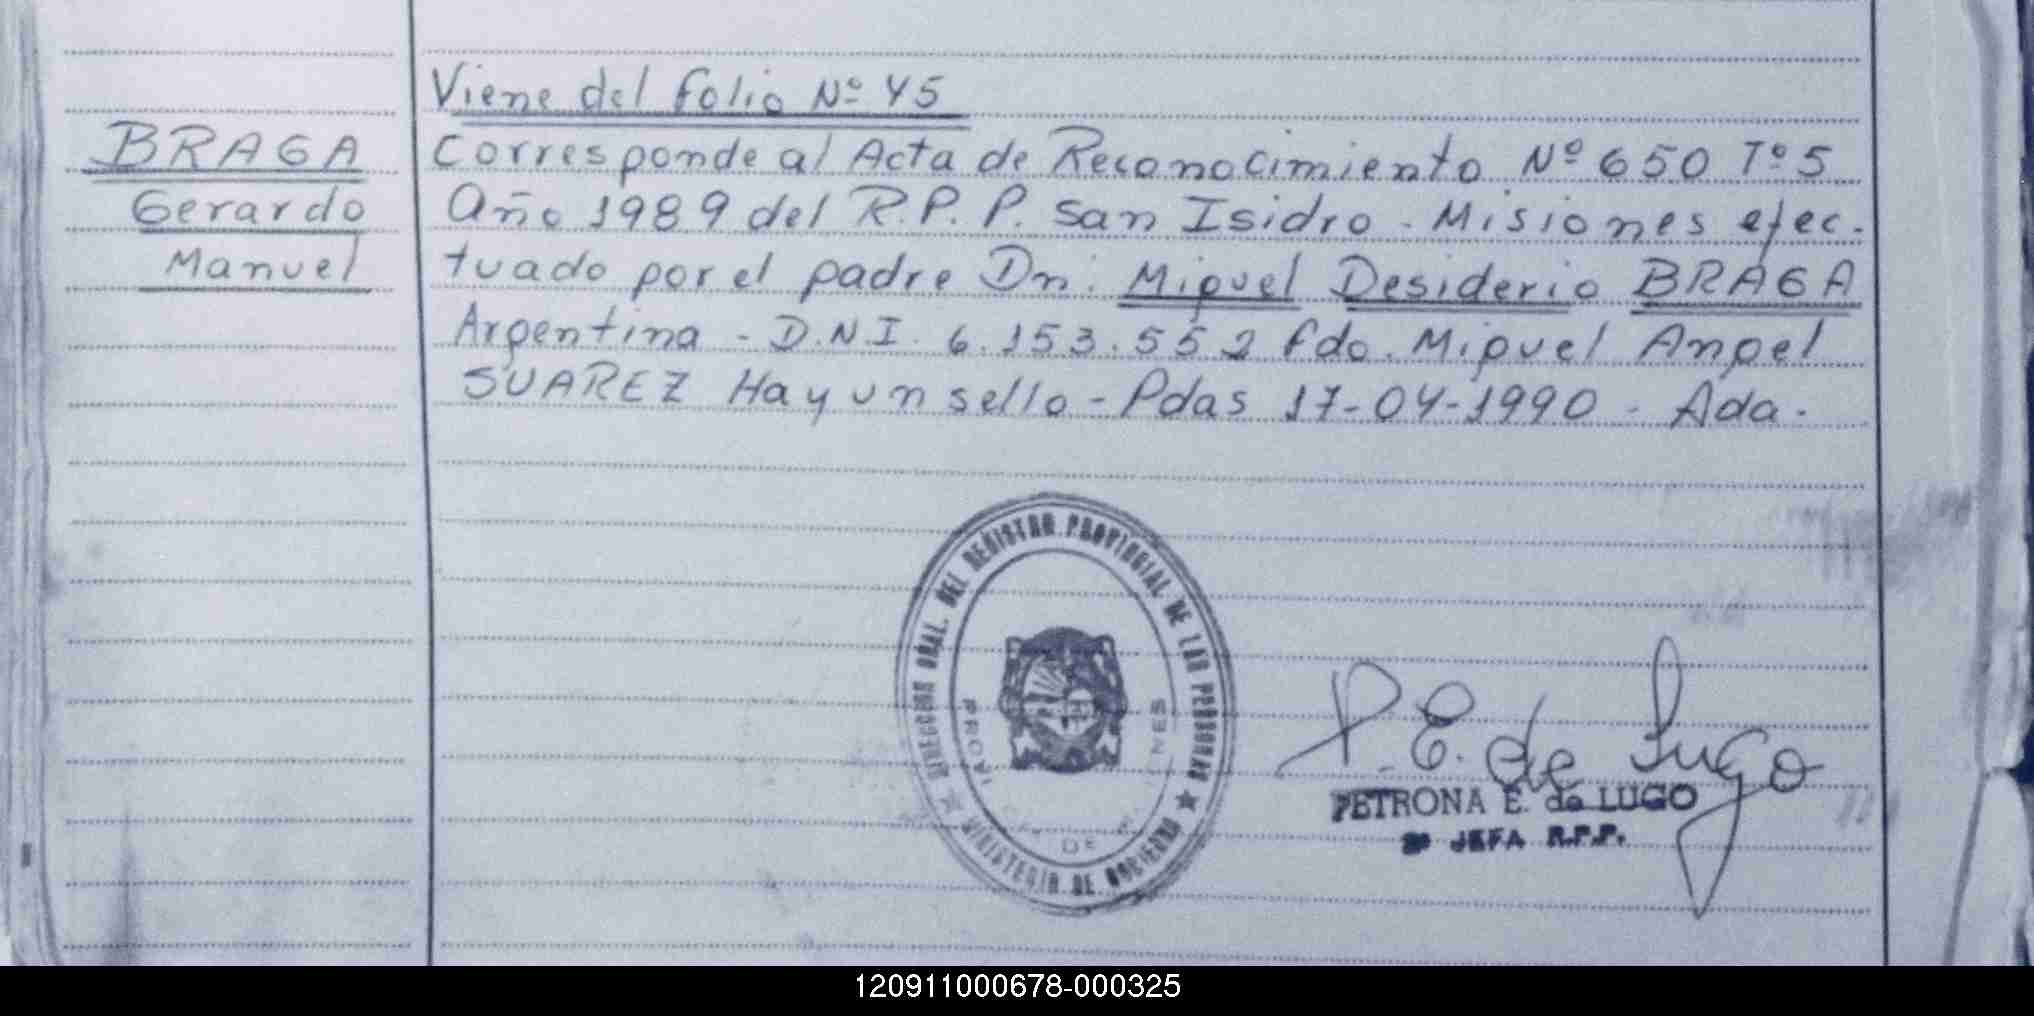 Viene del folio Nº 45
BRAGA
Gerardo
Manuel
Corresponde al Acta de Reconocimiento Nº 650 Tº 5
Año 1989 del R.P.P. San Isidro - Misiones efec-
tuado por el padre Dn. Miguel Desiderio BRAGA
Argentina - D.N.I. 6.153.552 fdo. Miguel Angel
SUAREZ Hay un sello - Pdas 17-04-1990 - Ada.
DIRECCION GRAL. DEL REGISTRO PROVINCIAL DE LAS PERSONAS
MINISTERIO DE GOBIERNO
DE
P. E. de Lugo
PETRONA E. de LUGO
JEFA R.P.P.
120911000678-000325